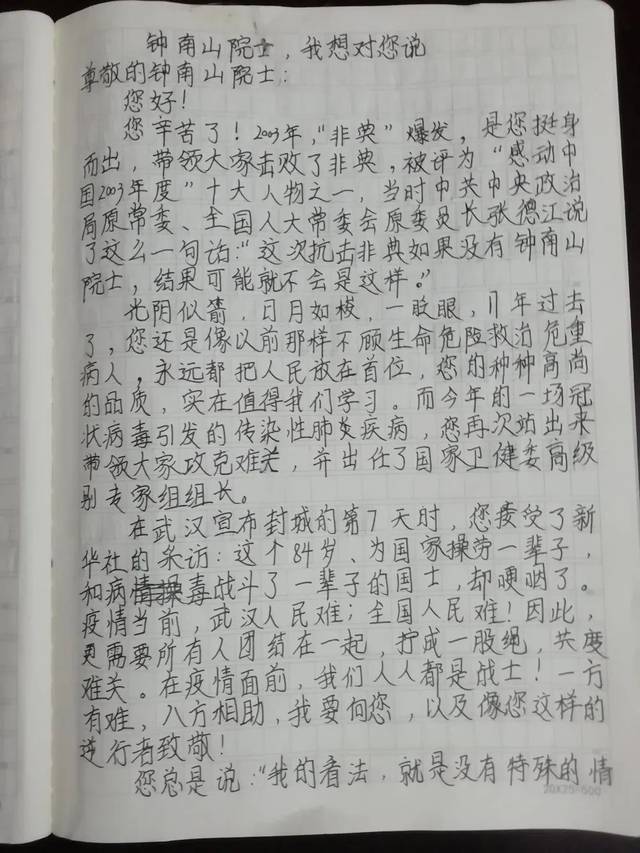 钟南山院士，我想对您说
尊敬的钟南山院士：
您好！
您辛苦了！2003年，“非典”爆发，是您挺身
而出，带领大家击败了非典，被评为“感动中
国2003年度”十大人物之一，当时中共中央政治
局原常委、全国人大常委会原委员长张德江说
了这么一句话：“这次抗击非典如果没有钟南山
院士，结果可能就不会是这样。”
光阴似箭，日月如梭，一眨眼，11年过去
了，您还是像以前那样不顾生命危险救治危重
病人，永远都把人民放在首位，您的种种高尚
的品质，实在值得我们学习。而今年的一场冠
状病毒引发的传染性肺炎疾病，您再次站出来
带领大家攻克难关，并出任了国家卫健委高级
别专家组组长。
在武汉宣布封城的第7天时，您接受了新
华社的采访：这个84岁、为国家操劳一辈子，
和病毒战斗了一辈子的国士，却哽咽了。
疫情当前，武汉人民难；全国人民难！因此，
更需要所有人团结在一起，拧成一股绳，共度
难关。在疫情面前，我们人人都是战士！一方
有难，八方相助，我要向您，以及像您这样的
逆行者致敬！
您总是说：“我的看法，就是没有特殊的情
20X25=500